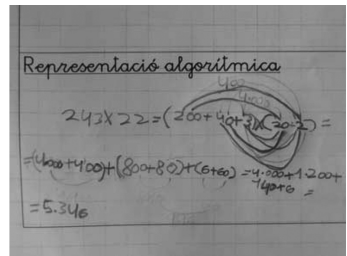 Representació algorítmica
400
4000
243X22=(200+40+3)x(20+2)=
=(4000+400)+(800+80)+(6+60)=4.000+1.200+
140+6=
=5.346